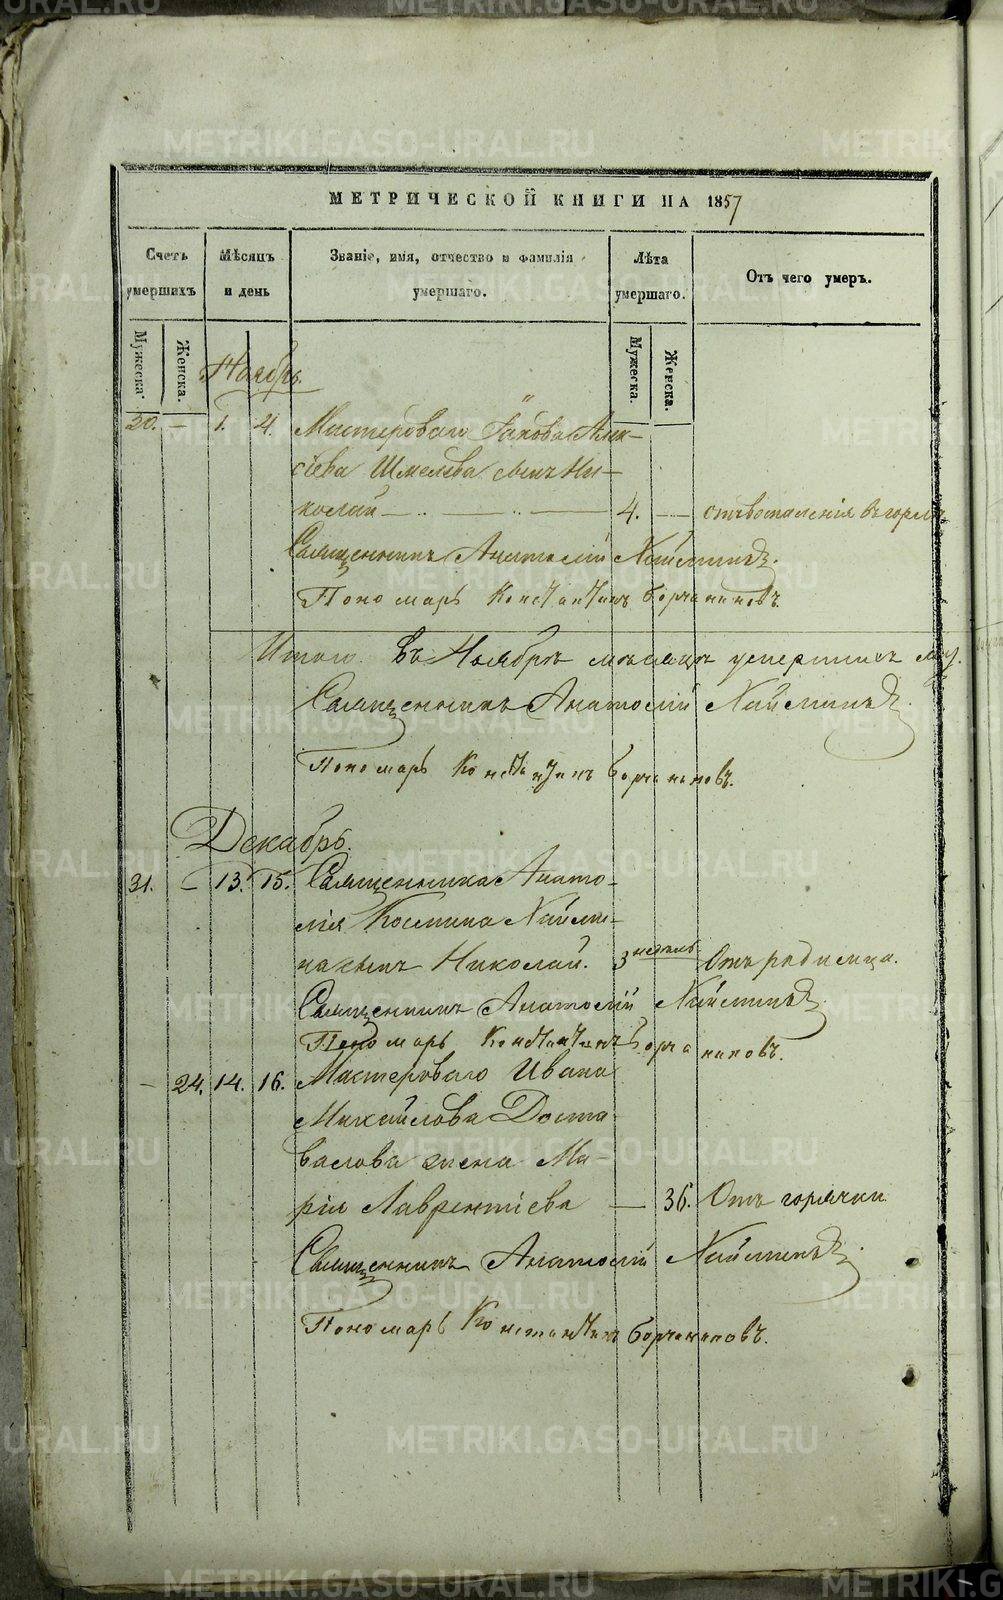 МЕТРИЧЕСКОЙ КНИГИ НА 1857
Счетъ умершихъ
Мѣсяцъ и день
Званіе, имя, отчество и фамилія умершаго.
Лѣта умершаго.
Отъ чего умеръ.
Мужеска.
Женска.
Мужеска.
Женска.
Ноябрь.
30. — 1. 4. Мастероваго Іакова Алек-
сіева Шмелева сынъ Ни-
колай — 4. — отъ воспаленія въ горлѣ
Священникъ Анатолій
Пономарь Константинъ Борчаниновъ.
Итого въ Ноябрѣ мѣсяцѣ умершихъ
Священникъ Анатолій
Пономарь Константинъ Борчаниновъ.
Декабрь.
31. — 13. 15. Священника Анато-
лія Космина
сынъ Николай. 3 недѣль Отъ родимца.
Священникъ Анатолій
Пономарь Константинъ Борчаниновъ.
— 24. 14. 16. Мастероваго Ивана
Михайлова Доста-
валова жена Ма-
рія Лаврентіева — 36. Отъ горячки
Священникъ Анатолій
Пономарь Константинъ Борчаниновъ.
METRIKI.GASO-URAL.RU